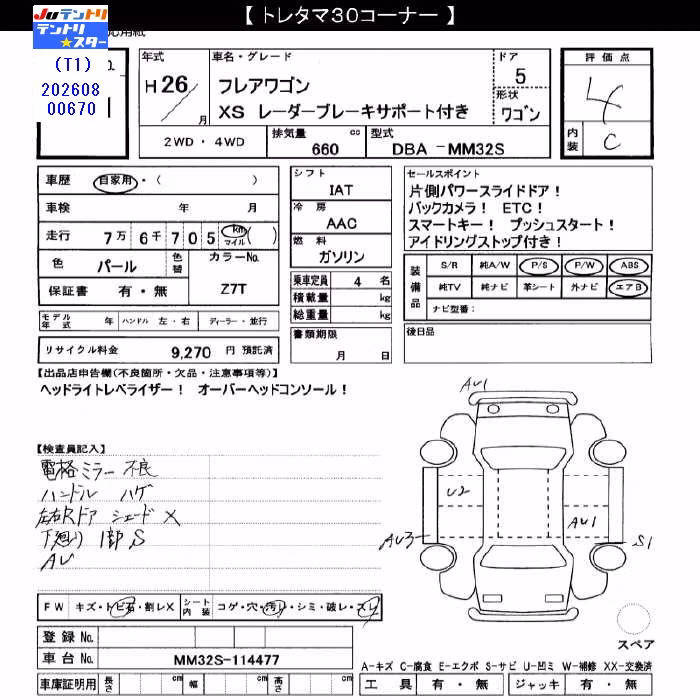 【 トレタマ30コーナー 】
JUテントリ
テントリ★スター
応用紙
(T1)
202608
00670
No.
年式
H 26
月
車名・グレード
フレアワゴン
XS レーダーブレーキサポート付き
ドア
5
形状
ワゴン
評価点
4
内装
C
2WD・4WD
排気量
660 cc
型式
DBA -MM32S
車歴 自家用・( )
車検 年 月
走行 7万 6千 705 km マイル ( )
色 パール 色替
カラーNo.
Z7T
保証書 有・無
モデル年式 年 ハンドル 左・右 ディーラー・並行
リサイクル料金 9,270 円 預託済
シフト
IAT
冷房
AAC
燃料
ガソリン
乗車定員 4 名
積載量 kg
総重量 kg
書類期限
月 日
セールスポイント
片側パワースライドドア！
バックカメラ！ ETC！
スマートキー！ プッシュスタート！
アイドリングストップ付き！
装備品
S/R 純A/W P/S P/W ABS
純TV 純ナビ 革シート 外ナビ エアB
ナビ型番：
後日品
【出品店申告欄(不良箇所・欠品・注意事項等)】
ヘッドライトレベライザー！ オーバーヘッドコンソール！
【検査員記入】
電格ミラー 不良
ハンドル ハゲ
左右Rドア シェード X
下廻り 1部S
AU
AU1
U2
AU1
AU3
S1
FW キズ・トビ石・割レX シート内装 コゲ・穴・汚レ・シミ・破レ・スレ
登録No.
車台No. MM32S-114477
車庫証明用 長さ cm 幅 cm 高さ cm
スペア
A-キズ C-腐食 E-エクボ S-サビ U-凹ミ W-補修 XX-交換済
工具 有・無 ジャッキ 有・無